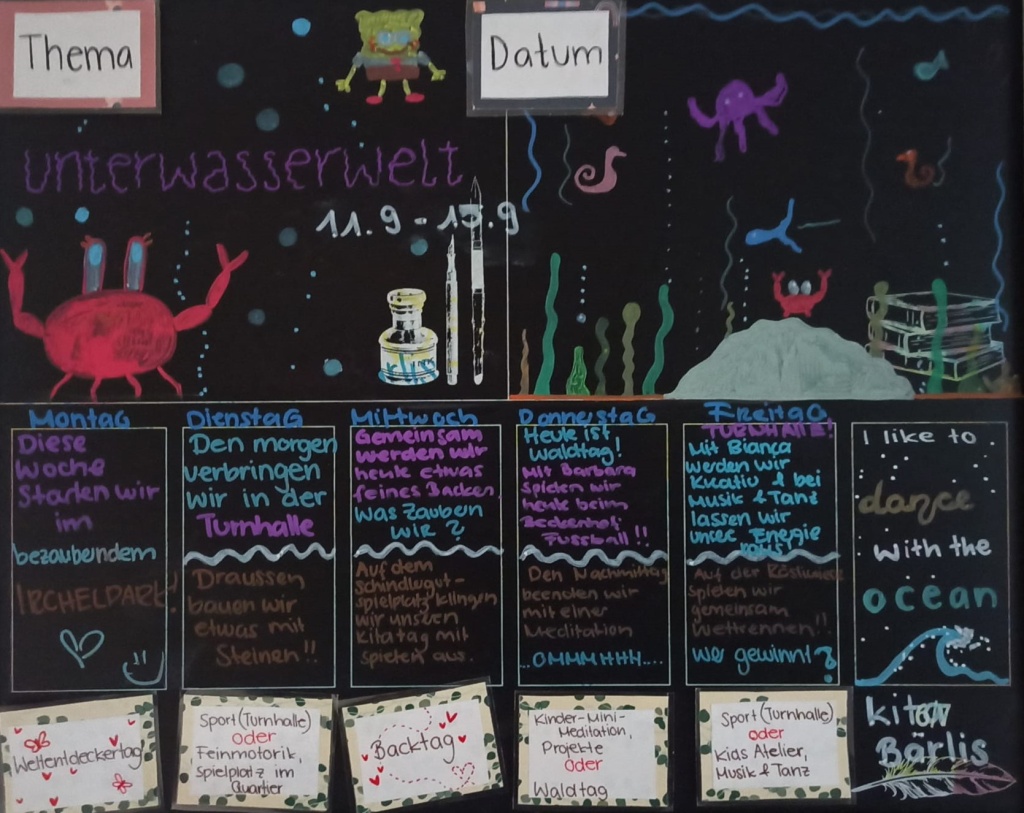 Thema
Datum
unterwasserwelt
11.9 - 15.9
Montag
Diese
Woche
Starten wir
im
bezauberndem
IRCHELPARK!
Dienstag
Den morgen
verbringen
wir in der
Turnhalle
Draussen
bauen wir
etwas mit
Steinen!!
Mittwoch
Gemeinsam
werden wir
heute etwas
feines Backen.
Was Zaubern
wir?
Auf dem
schindlugut-
spielplatz klingen
wir unseren
kitatag mit
spielen aus.
Donnerstag
Heute ist
Waldtag!
Mit Barbara
spielen wir
heute beim
Fussball!!
Den Nachmittag
beenden wir
mit einer
Meditation
..OMMMHHH....
Freitag
TURNHALLE!
Mit Bianca
werden wir
Kreativ & bei
Musik & Tanz
lassen wir
unsere Energie
raus!
Auf der
spielen wir
gemeinsam
Wettrennen!!
Wer gewinnt?
I like to
dance
with the
ocean
Weltentdeckertag
Sport (Turnhalle)
oder
Feinmotorik,
Spielplatz im
Quartier
Backtag
Kinder-Mini-
Meditation,
Projekte
oder
Waldtag
Sport (Turnhalle)
oder
Kids Atelier,
Musik & Tanz
kita
Bärlis